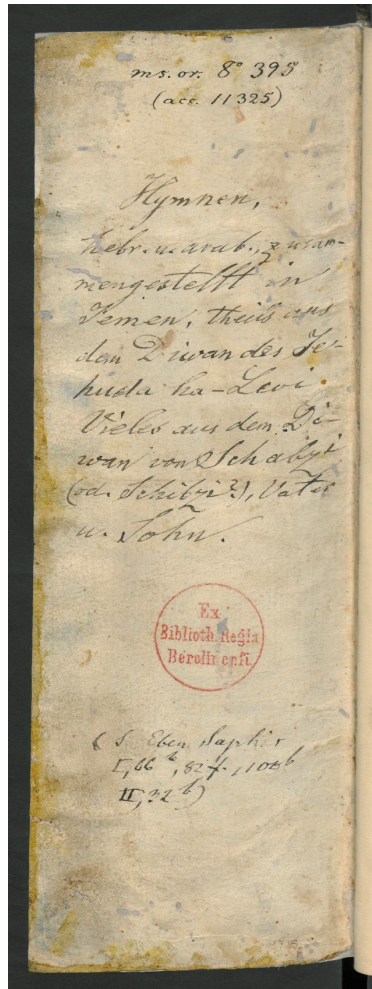 ms. or. 8° 395
(acc. 11325)
Hymnen,
hebr. u. arab., zusam-
mengestellt in
Jemen, theils aus
dem Diwan des Je-
huda ha-Levi.
Vieles aus dem Di-
wan von Schabzi
(od. Schibzi?), Vater
u. Sohn.
Ex
Biblioth. Regia
Berolinensi.
(S. Eben Saphir
I, 66 b, 82 f., 10 b
II, 32 b)